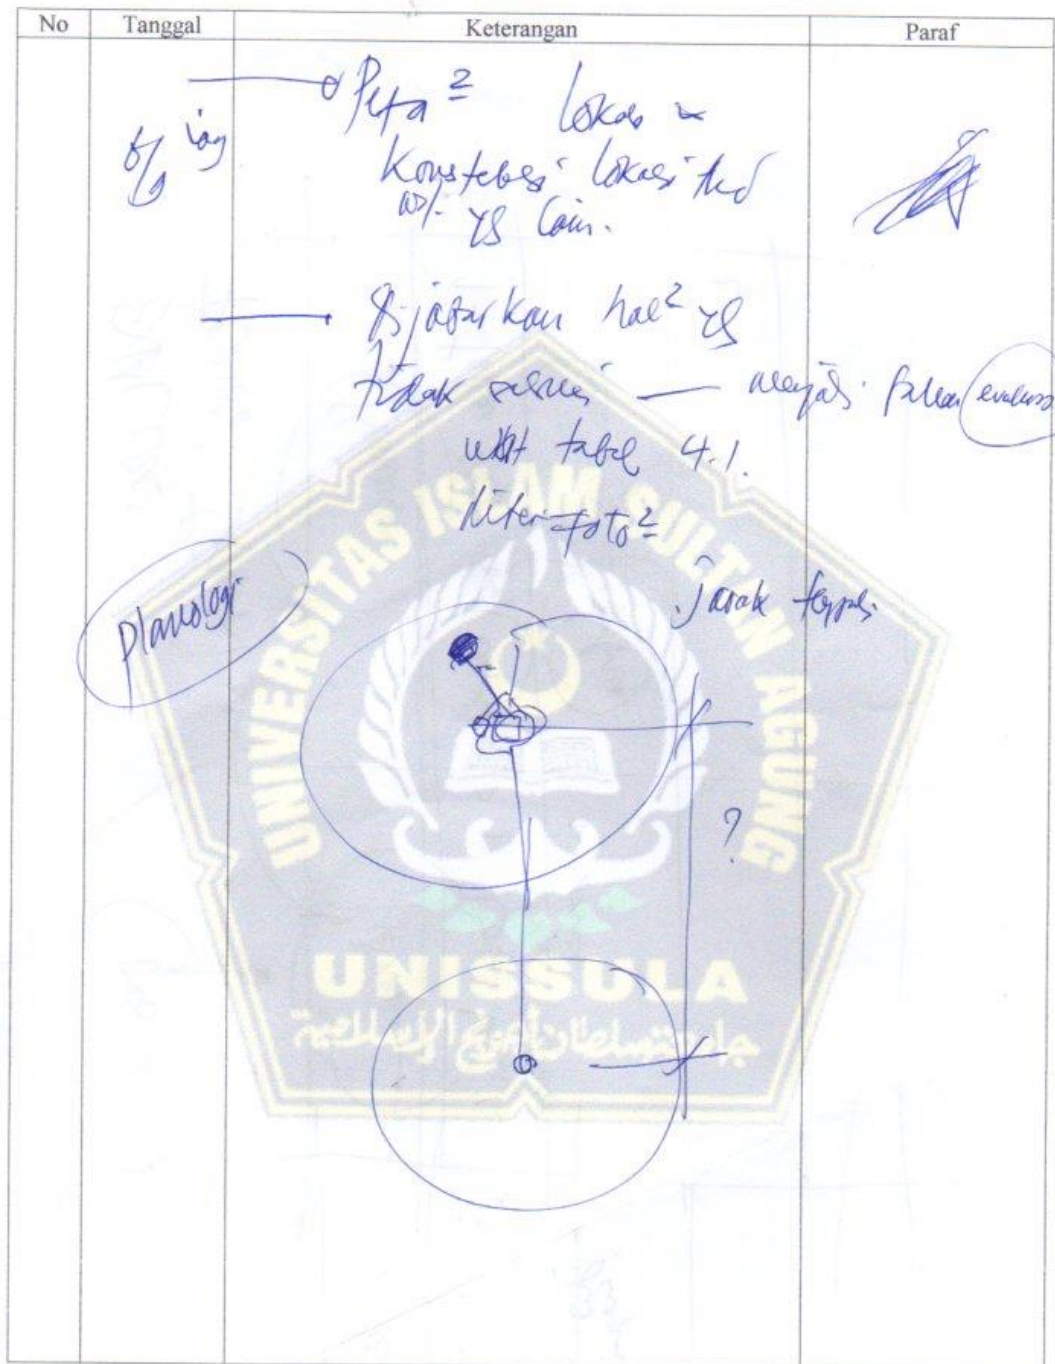 No Tanggal Keterangan Paraf
Peta² lokasi
Konstelasi lokasi
yg lain.
Dijabarkan hal² yg
tidak sesuai — menjadi bahan evaluasi
tabel 4.1.
foto²
jarak
planologi
?
UNIVERSITAS ISLAM SULTAN AGUNG
UNISSULA
جامعة سلطان أجونج الإسلامية